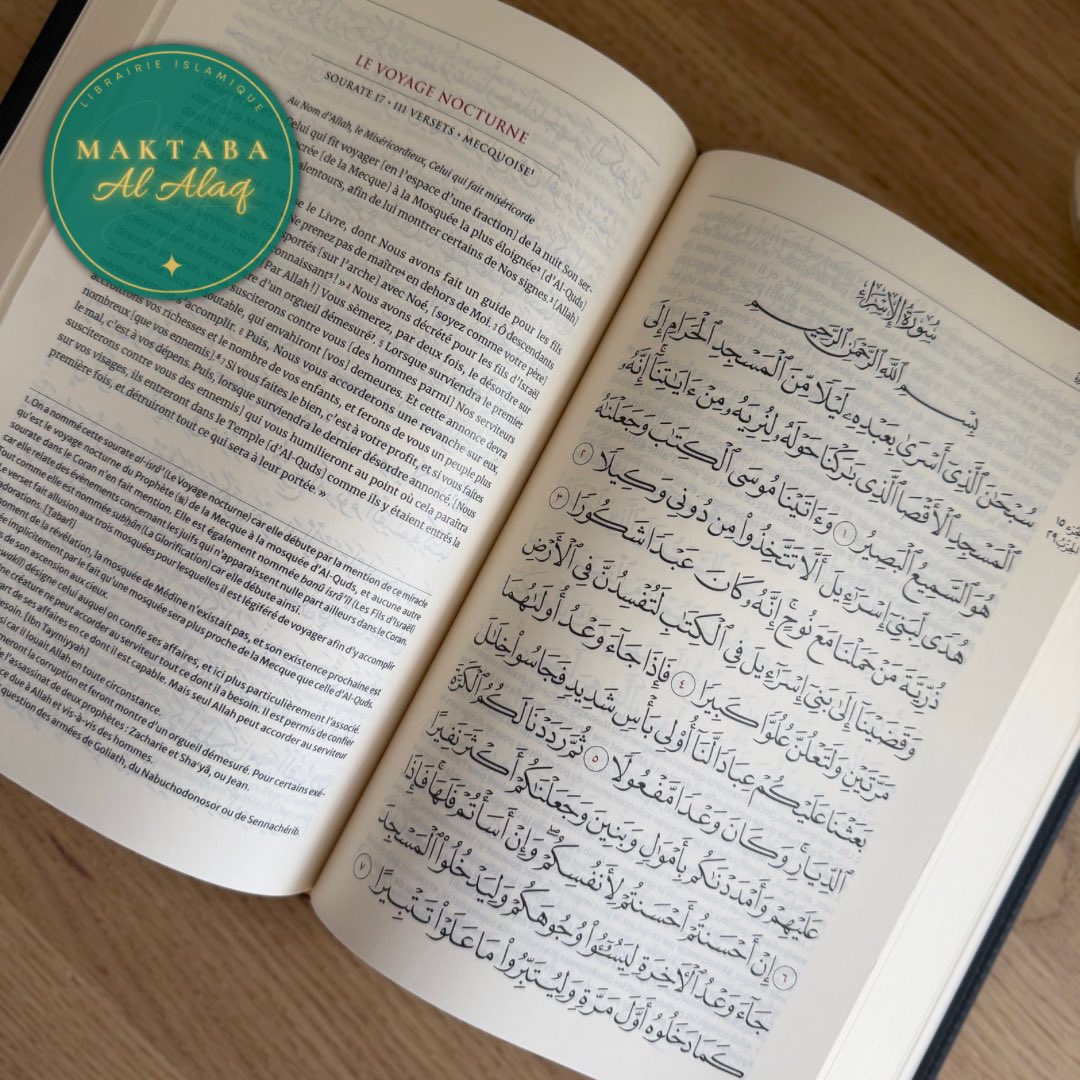 LIBRAIRIE ISLAMIQUE
MAKTABA
Al Alaq
LE VOYAGE NOCTURNE
SOURATE 17 • 111 VERSETS • MECQUOISE¹
Au Nom d'Allah, le Miséricordieux, Celui qui fait miséricorde
Celui qui fit voyager [en l'espace d'une fraction] de la nuit Son ser-
[de la Mecque] à la Mosquée la plus éloignée² [d'Al-Quds]
alentours, afin de lui montrer certains de Nos signes.³ [Allah]
le Livre, dont Nous avons fait un guide pour les fils
Ne prenez pas de maître⁴ en dehors de Moi. ³ Ô descendants
[sur l'arche] avec Noé, [soyez comme votre père]
connaissant⁵ ! » ⁴ Nous avons décrété pour les fils d'Israël
[Par Allah !] Vous sèmerez, par deux fois, le désordre sur
d'un orgueil démesuré⁶. ⁵ Lorsque surviendra le premier
susciterons contre vous [des hommes parmi] Nos serviteurs
redoutable, qui envahiront [vos] demeures. Et cette annonce devra
s'accomplir. ⁶ Puis, Nous vous accorderons une revanche sur eux,
accroîtrons vos richesses et le nombre de vos enfants, et ferons de vous un peuple plus
nombreux [que vos ennemis]. ⁷ Si vous faites le bien, c'est à votre profit, et si vous faites
le mal, c'est à vos dépens. Puis, lorsque surviendra le dernier désordre annoncé, [Nous
susciterons contre vous des ennemis] qui vous humilieront au point où cela paraîtra
sur vos visages, ils entreront dans le Temple [d'Al-Quds] comme ils y étaient entrés la
première fois, et détruiront tout ce qui sera à leur portée. »
1. On a nommé cette sourate al-isrâ' (Le Voyage nocturne) car elle débute par la mention de ce miracle
qu'est le voyage nocturne du Prophète (ﷺ) de la Mecque à la mosquée d'Al-Quds, et aucune autre
sourate dans le Coran n'en fait mention. Elle est également nommée banû isrâ'îl (Les Fils d'Israël)
car elle relate des évènements concernant les Juifs qui n'apparaissent nulle part ailleurs dans le Coran.
tout comme elle est nommée subhân (La Glorification) car elle débute ainsi.
verset fait allusion aux trois mosquées pour lesquelles il est légiféré de voyager afin d'y accomplir
adorations. [Tabarî]
moment de la révélation, la mosquée de Médine n'existait pas, et son existence prochaine est
implicitement par le fait qu'une mosquée sera plus proche de la Mecque que celle d'Al-Quds.
de son ascension aux cieux.
désigne celui auquel on confie ses affaires, et ici plus particulièrement l'associé.
créature ne peut accorder au serviteur tout ce dont il a besoin. Il est permis de confier
part de ses affaires en ce dont il est capable. Mais seul Allah peut accorder au serviteur
besoin. [Ibn Taymiyyah]
car il louait Allah en toute circonstance.
la corruption et feront montre d'un orgueil démesuré. Pour certains exé-
l'assassinat de deux prophètes : Zacharie et Sha'yâ, ou Jean.
due à Allah et vis-à-vis des hommes.
question des armées de Goliath, du Nabuchodonosor ou de Sennachérib.
سُورَةُ الإِسْرَاءِ
بِسْمِ ٱللَّهِ ٱلرَّحْمَٰنِ ٱلرَّحِيمِ
سُبْحَٰنَ ٱلَّذِىٓ أَسْرَىٰ بِعَبْدِهِۦ لَيْلًا مِّنَ ٱلْمَسْجِدِ ٱلْحَرَامِ إِلَى
ٱلْمَسْجِدِ ٱلْأَقْصَا ٱلَّذِى بَٰرَكْنَا حَوْلَهُۥ لِنُرِيَهُۥ مِنْ ءَايَٰتِنَآ إِنَّهُۥ
هُوَ ٱلسَّمِيعُ ٱلْبَصِيرُ ١ وَءَاتَيْنَا مُوسَى ٱلْكِتَٰبَ وَجَعَلْنَٰهُ
هُدًى لِّبَنِىٓ إِسْرَٰٓءِيلَ أَلَّا تَتَّخِذُوا۟ مِن دُونِى وَكِيلًا ٢
ذُرِّيَّةَ مَنْ حَمَلْنَا مَعَ نُوحٍ إِنَّهُۥ كَانَ عَبْدًا شَكُورًا ٣
وَقَضَيْنَآ إِلَىٰ بَنِىٓ إِسْرَٰٓءِيلَ فِى ٱلْكِتَٰبِ لَتُفْسِدُنَّ فِى ٱلْأَرْضِ
مَرَّتَيْنِ وَلَتَعْلُنَّ عُلُوًّا كَبِيرًا ٤ فَإِذَا جَآءَ وَعْدُ أُولَىٰهُمَا
بَعَثْنَا عَلَيْكُمْ عِبَادًا لَّنَآ أُو۟لِى بَأْسٍ شَدِيدٍ فَجَاسُوا۟ خِلَٰلَ
ٱلدِّيَارِ وَكَانَ وَعْدًا مَّفْعُولًا ٥ ثُمَّ رَدَدْنَا لَكُمُ ٱلْكَرَّةَ
عَلَيْهِمْ وَأَمْدَدْنَٰكُم بِأَمْوَٰلٍ وَبَنِينَ وَجَعَلْنَٰكُمْ أَكْثَرَ نَفِيرًا
٦ إِنْ أَحْسَنتُمْ أَحْسَنتُمْ لِأَنفُسِكُمْ وَإِنْ أَسَأْتُمْ فَلَهَا فَإِذَا
جَآءَ وَعْدُ ٱلْـَٔاخِرَةِ لِيَسُـۥٓـُٔوا۟ وُجُوهَكُمْ وَلِيَدْخُلُوا۟ ٱلْمَسْجِدَ
كَمَا دَخَلُوهُ أَوَّلَ مَرَّةٍ وَلِيُتَبِّرُوا۟ مَا عَلَوْا۟ تَتْبِيرًا ٧